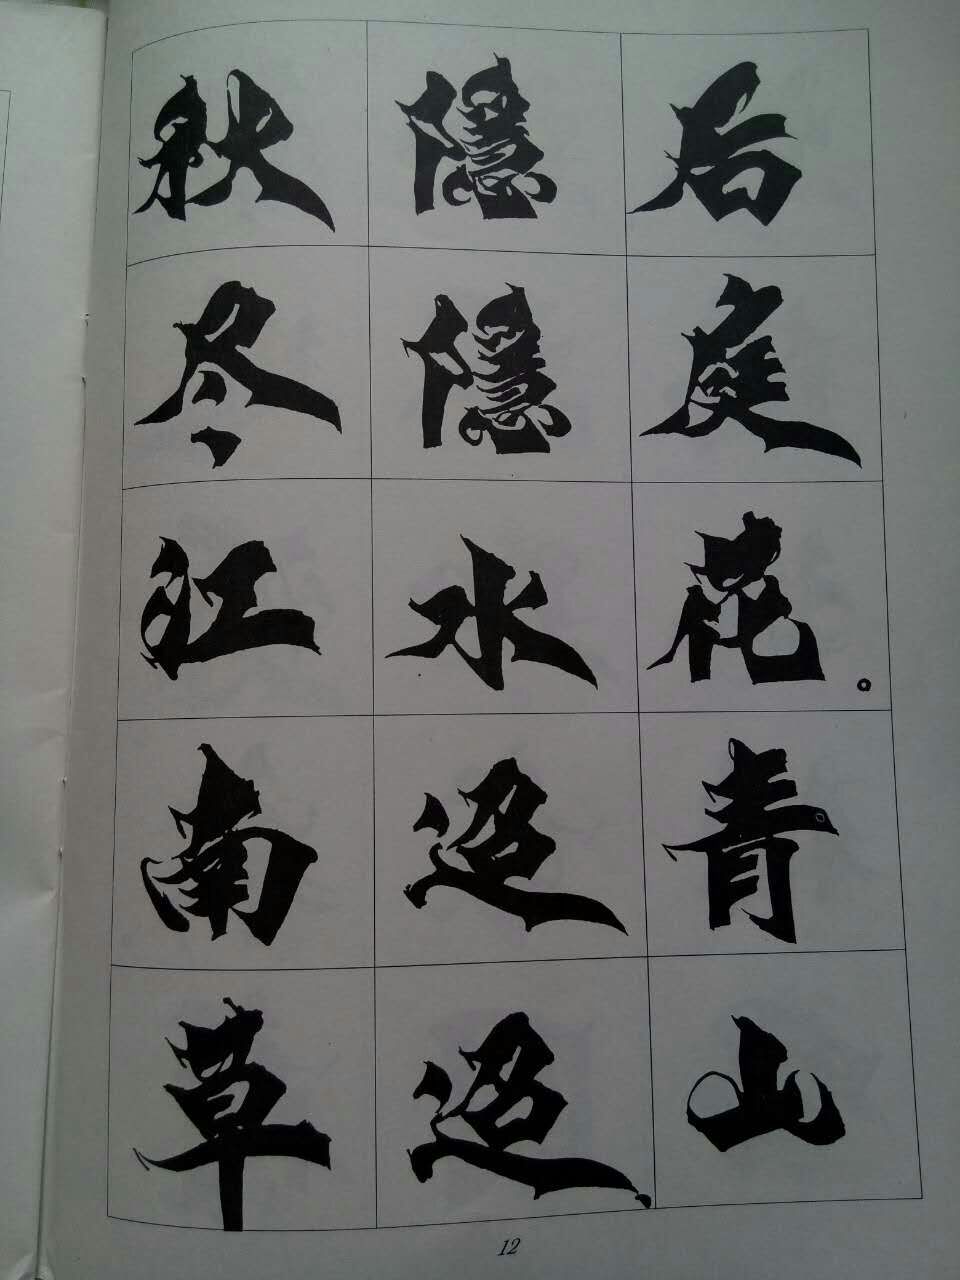 后庭花。青山
隱隱水迢迢，
秋尽江南草
12